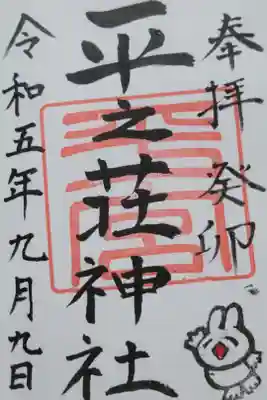 奉拝 癸卯
平之荘神社
令和五年九月九日